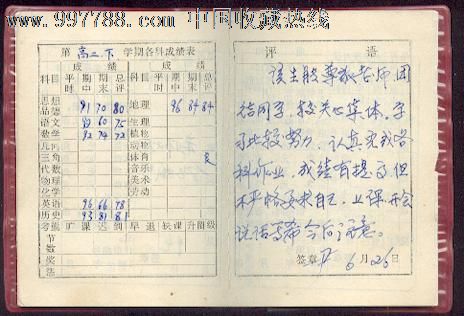 www.997788.com 中国收藏热线
第 高二.下 学期各科成绩表
成绩 成绩
科目 平时 期中 期末 总评 科目 平时 期中 期末 总评
思想品德 91 70 80 地理 96 84 84
语文 60 75 生理
数学 92 74 72 植物
几何 动物
三角 体育 良
代数 音乐
物理 美术
化学 劳动
英语 96 66 78
历史 93 81 81
考勤 旷课 迟到 早退 缺课 升留级
节数
奖法
评语
该生能尊敬老师团
结同学,较关心集体,学
习比较努力,认真完成各
科作业,成绩有提高.但
不严格要求自己,上课开会
说话等希今后注意。
签章 6月26日